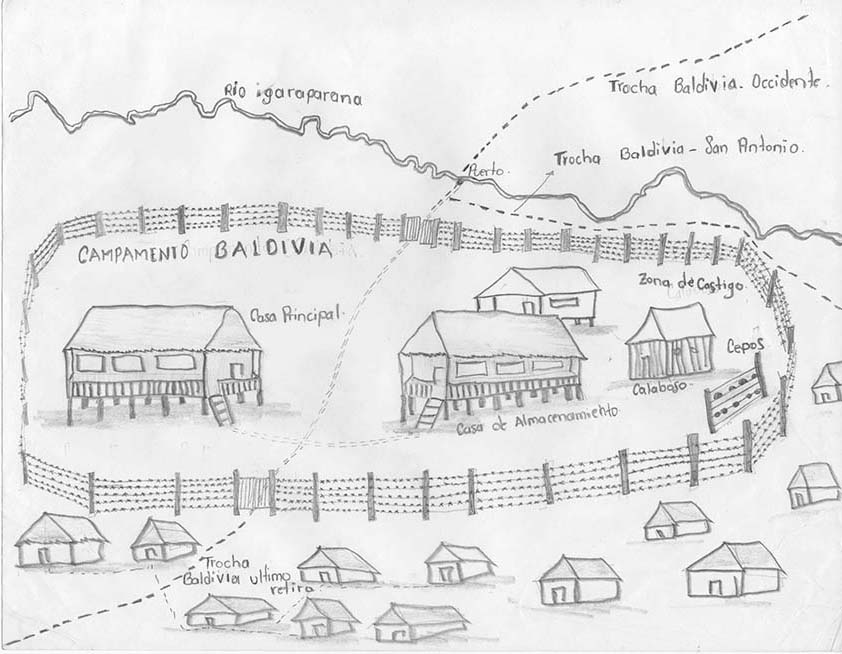 Rio igaraparana
Trocha Baldivia. Occidente.
Puerto.
Trocha Baldivia - San Antonio.
CAMPAMENTO BALDIVIA
Zona de Castigo
Casa Principal.
Cepos
Calaboso.
Casa de Almacenamiento.
Trocha
Baldivia ultimo
retiro.